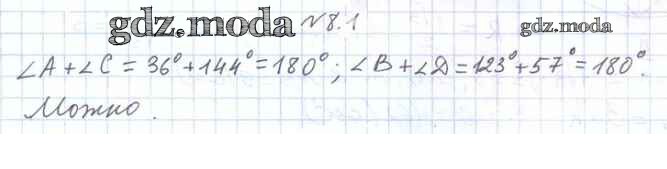 gdz.moda №8.1 gdz.moda
∠A + ∠C = 36° + 144° = 180°; ∠B + ∠D = 123° + 57° = 180°.
Можно.